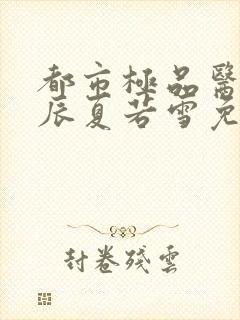 都市極品醫
辰夏若雪免
封卷殘雲